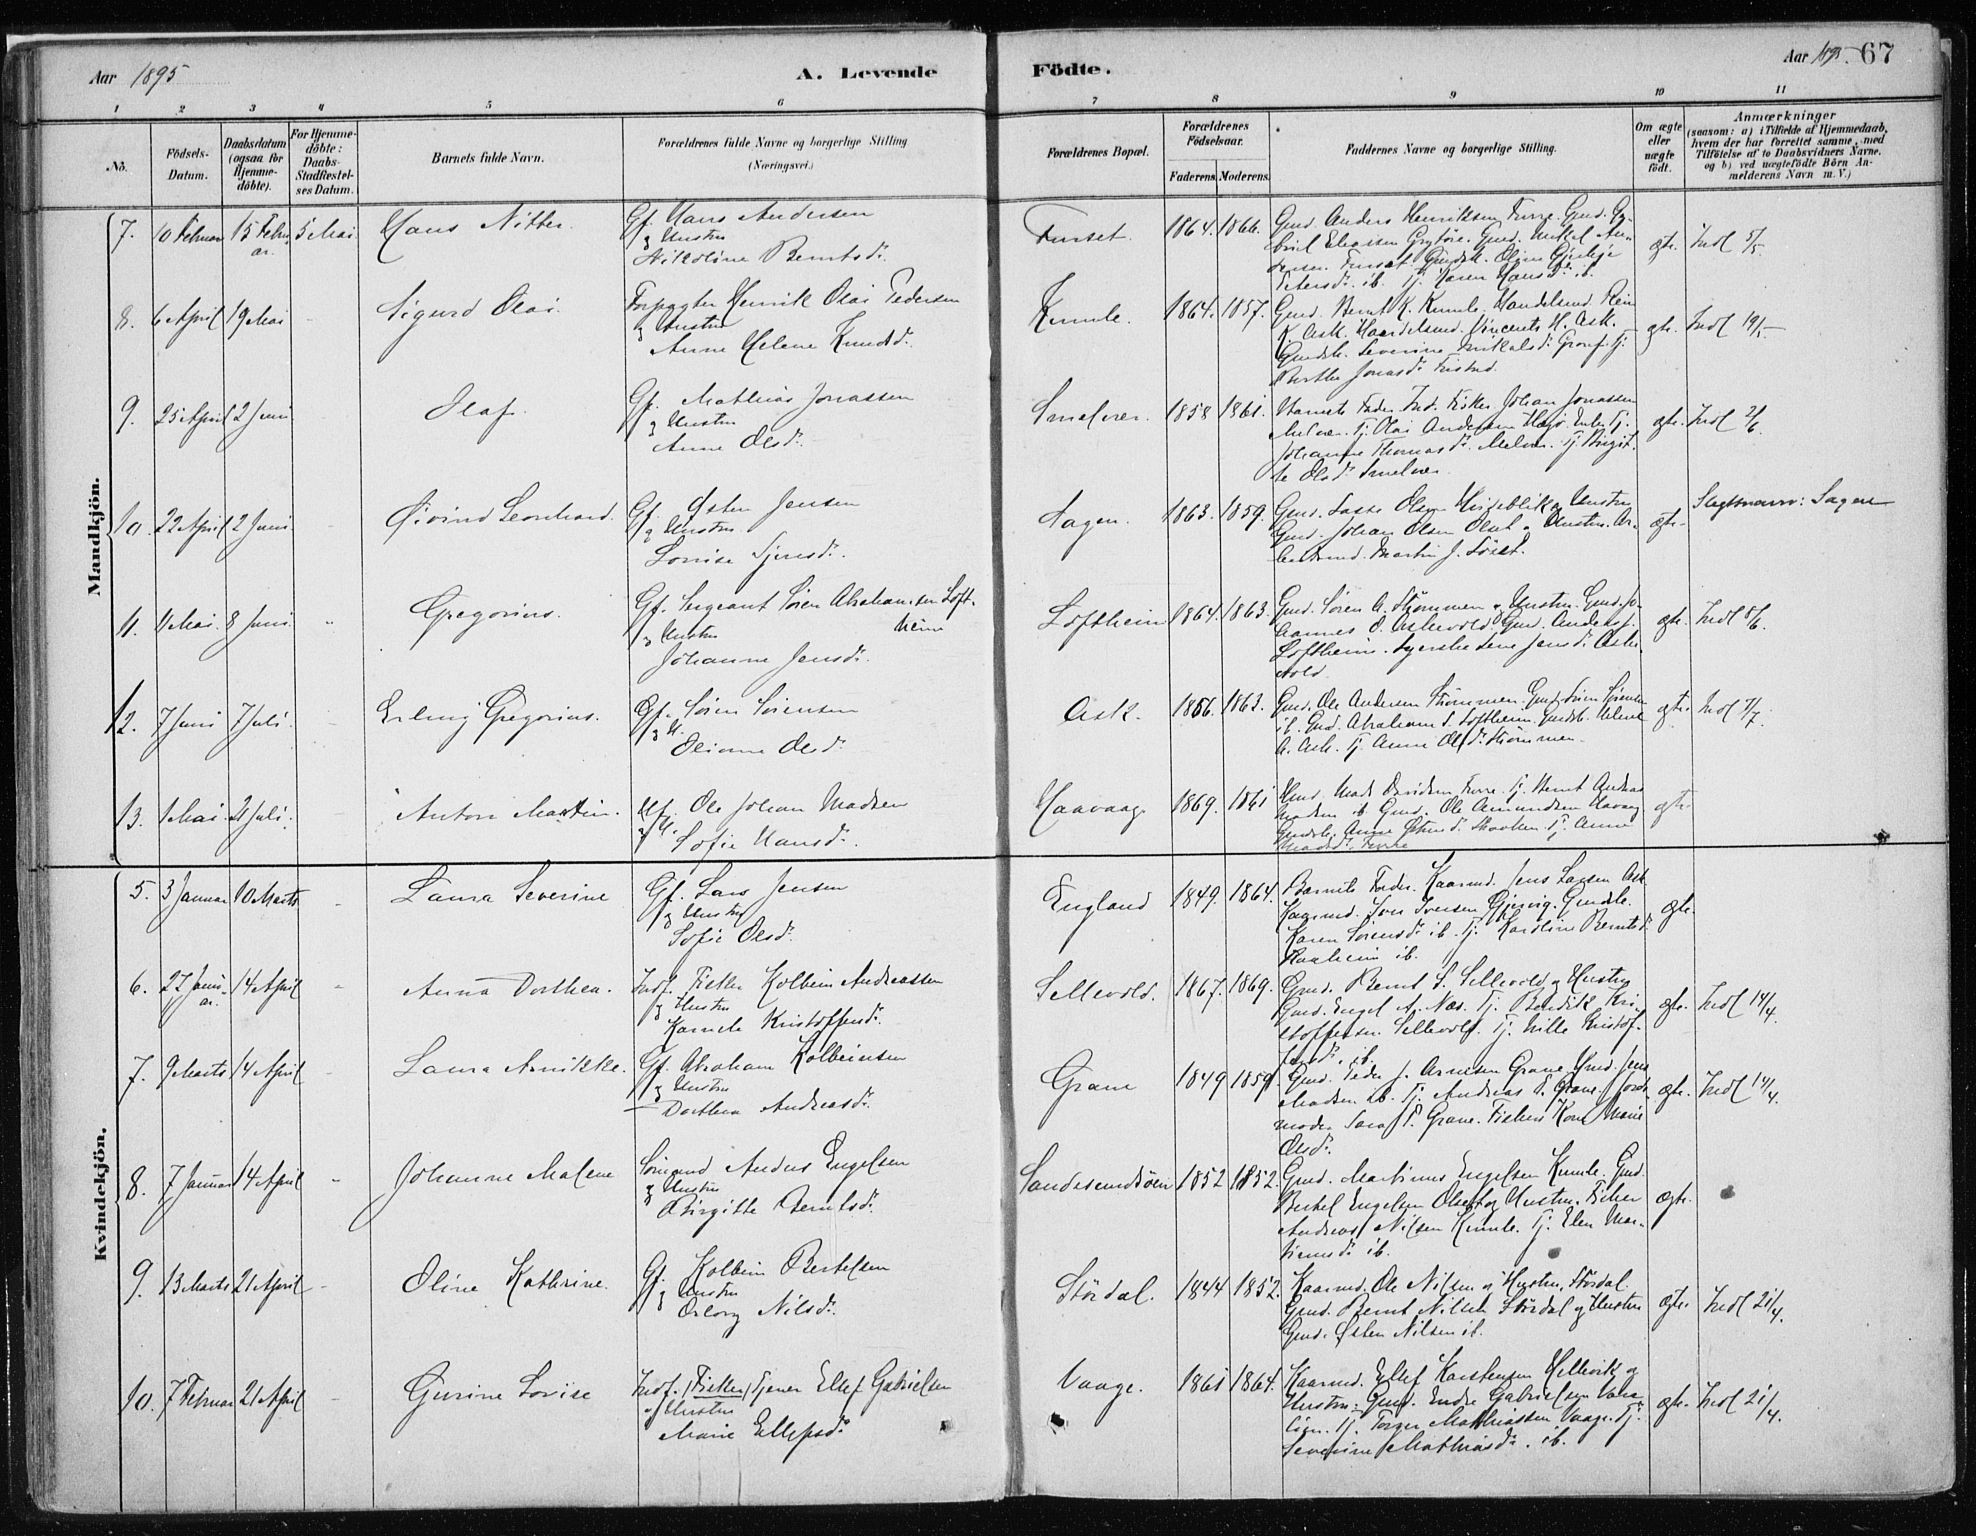 Aar 1895
A. Levende
Födte.
Aar 1895. 67
1 2 3 4 5 6 7 8 9 10 11
No.
Födsels-Datum.
Daabsdatum (ogsaa for Hjemme-döbte).
For Hjemme-döbte: Daabs-Stadfæstel-ses Datum.
Barnets fulde Navn.
Forældrenes fulde Navne og borgerlige Stilling (Næringsvei.)
Forældrenes Bopæl.
Forældrenes Födselsaar.
Faderens. Moderens.
Faddernes Navne og borgerlige Stilling.
Om ægte eller uægte födt.
Anmærkninger
(saasom: a) i Tilfælde af Hjemmedaab,
hvem der har forrettet samme, med
Tilföielse af to Daabsvidners Navne,
og b) ved uægtefödte Börn An-
melderens Navn m. V.)
Mandkjön.
7. 10 Februar 15 Februar. 5 Mai Hans Nitter.
Gf. Hans Andersen
og Hustru
Nikoline Berntsdr.
Furset. 1864. 1866.
Gmd. Anders Henriksen Furre. Gmd.
ægte. Indf 5/5
8. 6 April 19 Mai Sigurd Olai.
Forpagter Henrik Olai Pedersen
og Hustru
Anne Helene Knudsdr.
Kumle. 1864. 1857.
Gmd. Bernt K. Kumle. Handelsmd.
K. Ask. Handelsmd. Vincents H. Ask.
Berthe Jonasdr.
ægte. Indf 19/5
9. 25 April 2 Juni Olaf.
Gf. Mathias Jonassen
og Hustru
Anne Olsdr.
1858 1861.
Barnets Fader. Ind. Fisker Johan Jonassen
Johanne Thomasdr.
ægte. Indf 2/6.
10. 22 April 2 Juni. Øivind Leonhard.
Gf. Østen Jensen
og Hustru
Lovise
Sagen. 1863. 1859.
Gmd. Lasse Olsen og Hustru
Gmd. Johan Olsen og Hustru.
Martin J.
ægte. Slegtsnavn: Sagen
11. 11 Mai. 8 Juni. Gregorius.
Gf. Sergeant Sören Abrahamsen Loft-
heim
og Hustru
Johanne Jensdr.
Loftheim 1864. 1863.
Gmd. Sören A. Strömmen og Hustru. Gmd. Jo-
hannes O. Askevold. Gmd. Anders J.
Loftheim. Syerske Lene Jensdr. Aske-
vold.
ægte. Indf 8/6.
12. 7 Juni 7 Juli. Erling Gregorius.
Gf. Sören Sörensen
og H.
Oliane Olsdr.
Ask. 1856. 1863.
Gmd. Ole Andersen Strömmen. Gmd. Sören Sörensen
ib. Gmd. Abraham S. Loftheim. Gmdsk. Helene
A. Ask. Tj. Anne Olsdr. Strömmen.
ægte. Indf 7/7.
13. 1 Mai. 21 Juli. Anton Martin.
Gf. Ole Johan Madsen
og H.
Sofie Hansdr.
Haavaag. 1869. 1861
Gmd. Mads Davidsen Furre. Tj. Bernt Andreas
Madsen ib. Gmd. Ole Amundsen Havaag
Madsdr. Furre
ægte
Kvindekjön.
5. 3 Januar 10 Marts - Laura Severine
Gf. Lars Jensen
og Hustru
Sofie Olsdr.
England 1849. 1864.
Barnets Fader. Kaarmd. Jens Larsen Ask
Kaarmd. Iver Iversen Gjervig. Gmdsk.
Karen Sörensdr. ib. Tj. Karoline Berntsdr.
ib.
ægte.
6. 27 Januar. 14 April - Anna Dorthea.
Indf. Fisker Kolbein Andreassen
og Hustru
Kamela Kristoffersdr.
Sellevold. 1867. 1869.
Gmd. Bernt S. Sellevold og Hustru
Gmd. Engel A. Næs. Tj. Bendik Kri-
stoffersen Sellevold. Tj. Kristof-
fersdr. ib.
ægte. Indf 14/4.
7. 9 Marts 14 April Laura Annikke.
Gf. Abraham Kolbeinsen
og Hustru
Dorthea Andreasdr.
Grane 1849 1859.
Gmd. Peder J. Arnesen Grane. Gmd. Jens
Madsen ib. Tj. Andreas P. Grane. Jord-
moder Sara P. Grane. Fiskers Kone Marie
Olsdr.
ægte. Indf 14/4.
8. 7 Januar 14 April Johanne Malene
Sömand Anders Engelsen
og Hustru
Birgitte Berntsdr.
Sandesundsöen 1852 1852.
Gmd. Martinus Engelsen Kumle. Gmd.
Bertel Engelsen og Hustru. Fisker
Andreas Nilsen Kumle. Tj. Elen Mar-
tinusdr. ib.
ægte.
9. 13 Marts 21 April - Oline Kathrine.
Gf. Kolbein Bertelsen
og Hustru
Nilsdr.
Stördal. 1844 1852.
Kaarmd. Ole Nilsen og Hustru, Stördal.
Gmd. Bernt Nilsen Stördal og Hustru
Gmd. Østen Nilsen ib.
ægte. Indf 21/4.
10. 7 Februar 21 April - Gurine Lovise
Indf. (Fisker) Tjener Ellef Gabrielsen
og Hustru
Marie Ellefsdr.
Vaage. 1861 1864.
Kaarmd. Ellef Karstensen Hellevik og
Hustru. Gmd. Endre Gabrielsen
Tj. Torger Mathiassen Vaage. Tj.
Severine Mathiasdr. ib.
ægte. Indf 21/4.